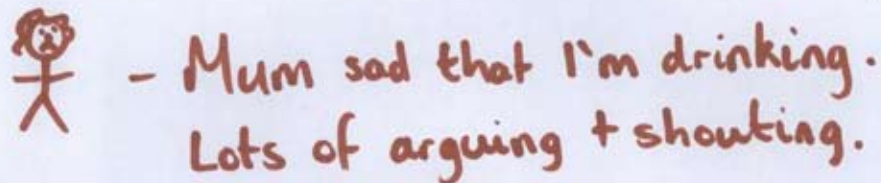 - Mum sad that I'm drinking.
Lots of arguing + shouting.